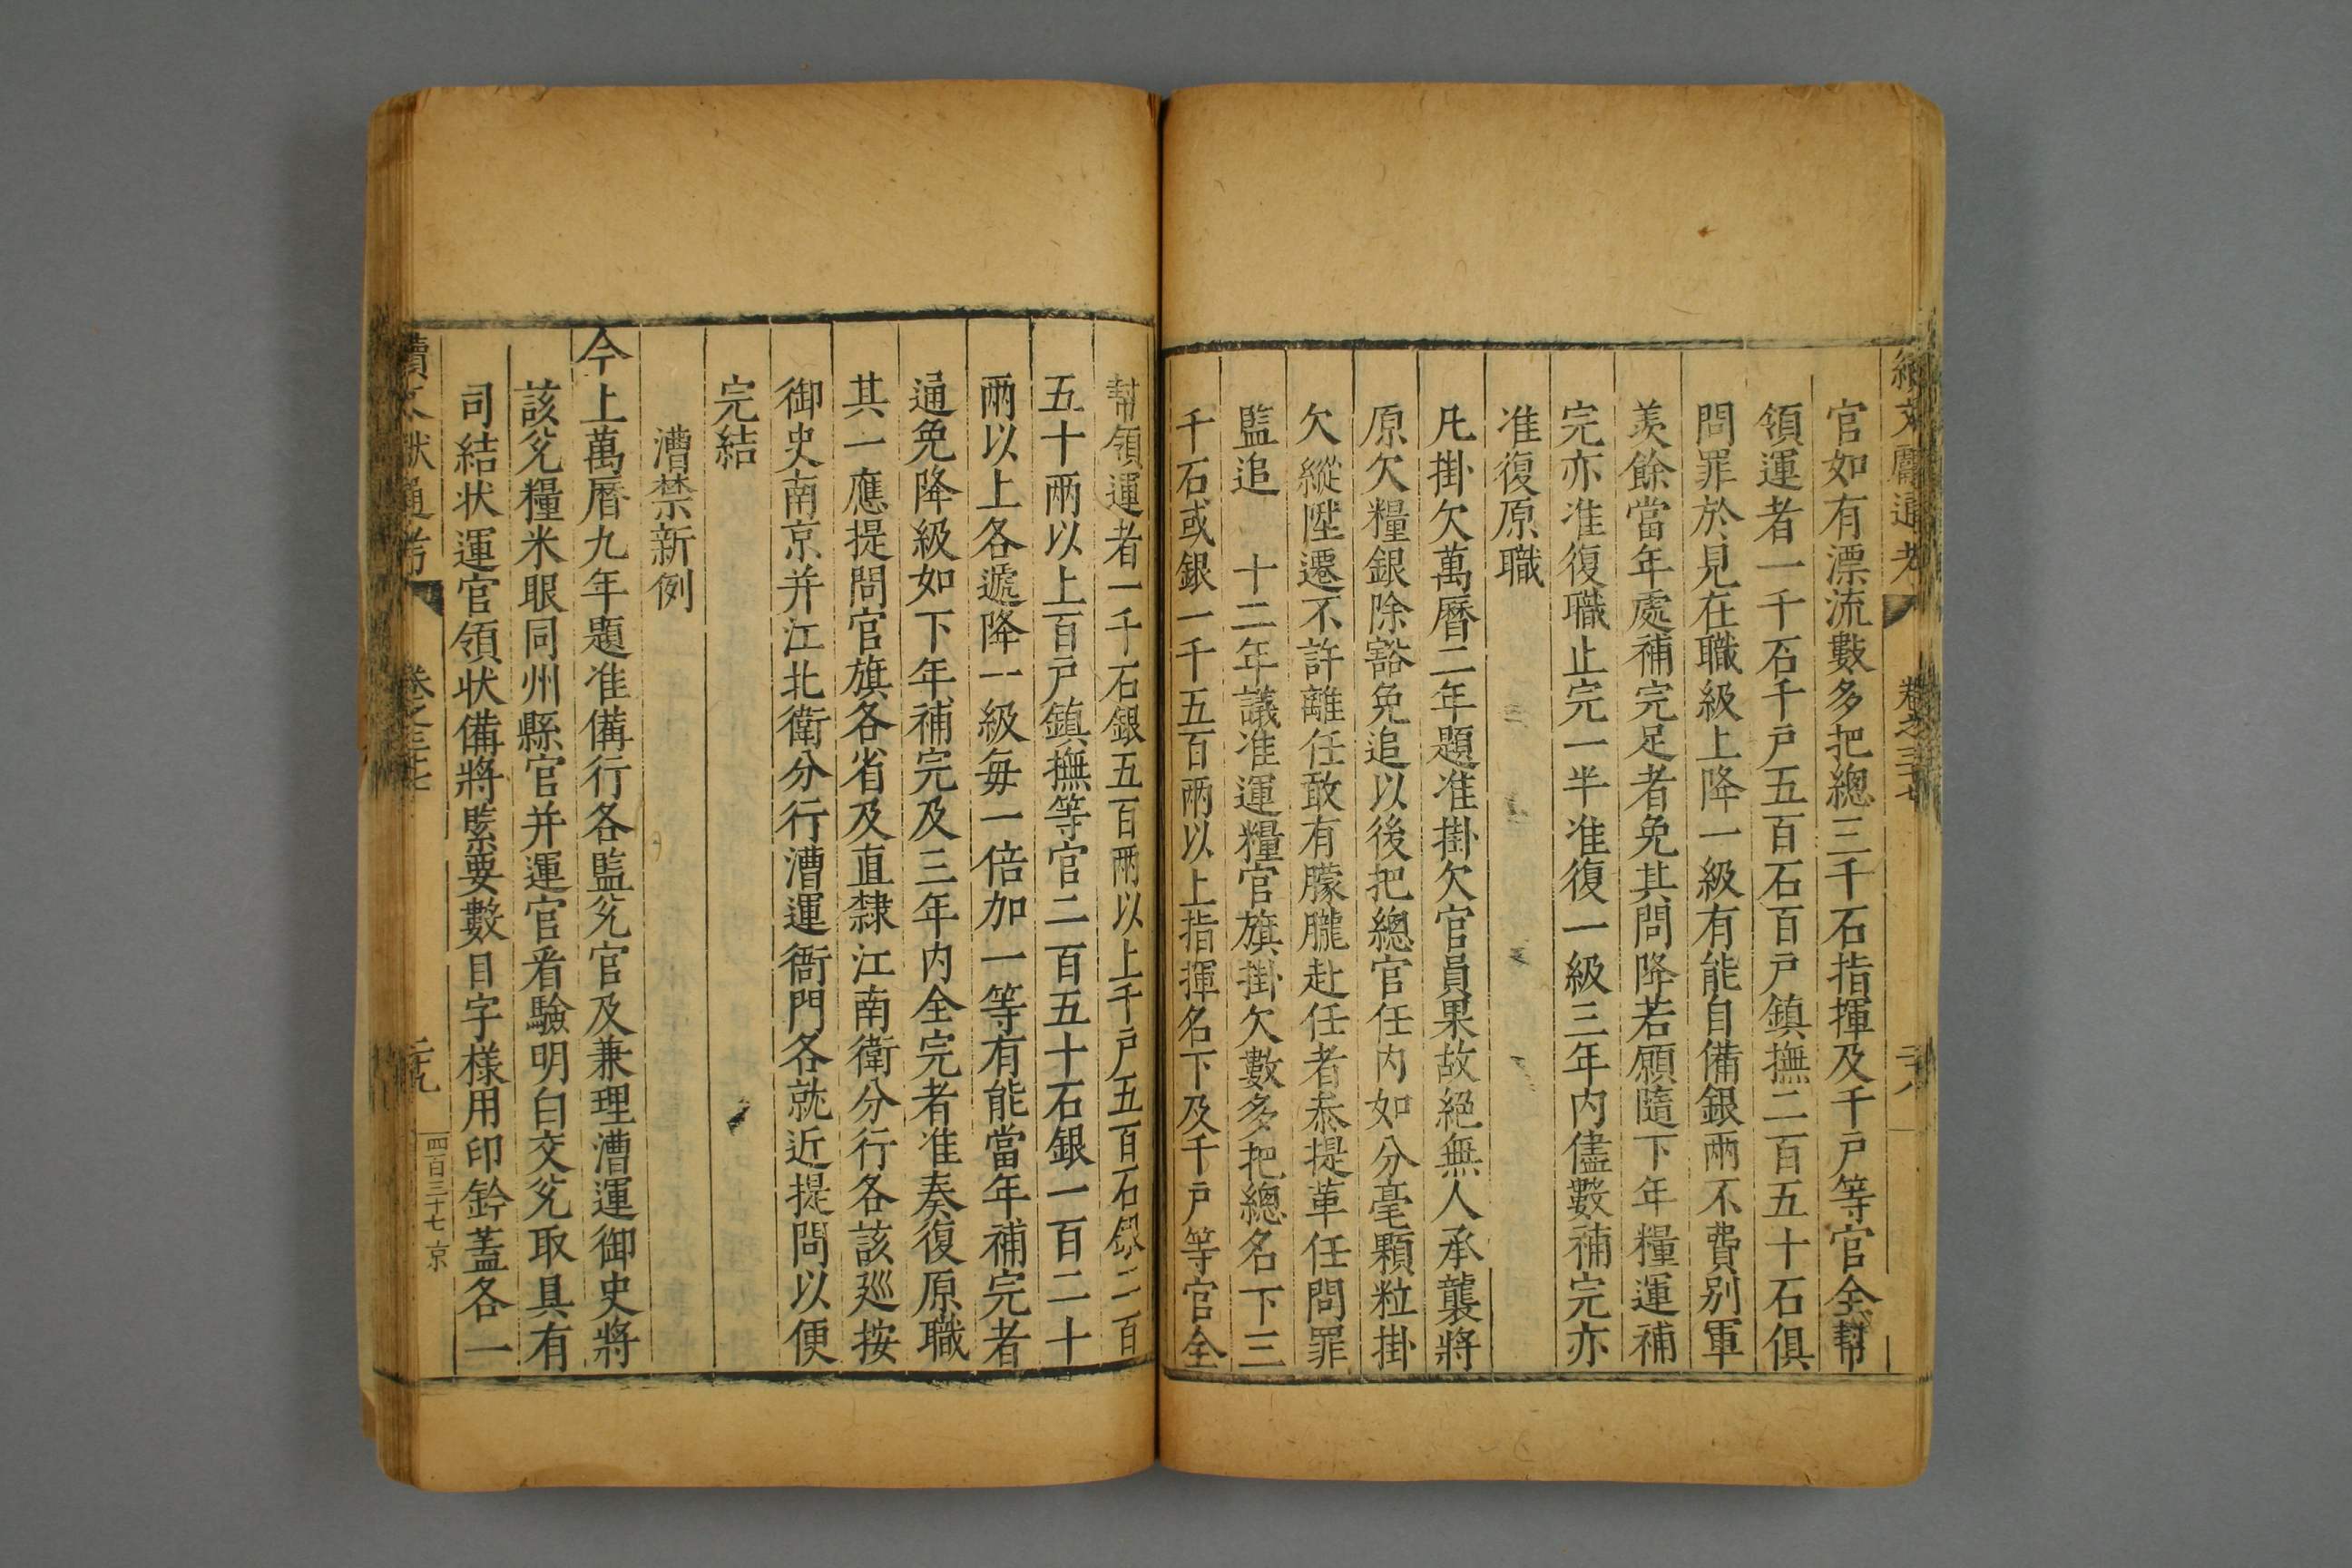 續文獻通考
卷之三十七
二十八
官如有漂流數多把總三千石指揮及千戶等官全幫
領運者一千石千戶五百石百戶鎮撫二百五十石俱
問罪於見在職級上降一級有能自備銀兩不費別軍
羨餘當年處補完足者免其問降若願隨下年糧運補
完亦准復職止完一半准復一級三年內儘數補完亦
准復原職
凡掛欠萬曆二年題准掛欠官員果故絕無人承襲將
原欠糧銀除豁免追以後把總官任內如分毫顆粒掛
欠縱陞遷不許離任敢有朦朧赴任者叅提革任問罪
監追　十二年議准運糧官旗掛欠數多把總名下三
千石或銀一千五百兩以上指揮名下及千戶等官全
幫領運者一千石銀五百兩以上千戶五百石銀二百
五十兩以上百戶鎮撫等官二百五十石銀一百二十
兩以上各遞降一級每一倍加一等有能當年補完者
通免降級如下年補完及三年內全完者准奏復原職
其一應提問官旗各省及直隸江南衛分行各該廵按
御史南京并江北衛分行漕運衙門各就近提問以便
完結
漕禁新例
今上萬曆九年題准備行各監兊官及兼理漕運御史將
該兊糧米眼同州縣官并運官看驗明白交兊取具有
司結状運官領状備將緊要數目字樣用印鈐蓋各一
續文獻通考
卷之三十七
二十九
四百三十七 京